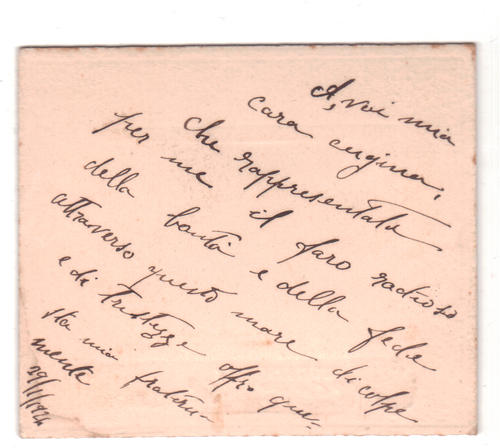 A, voi mia
cara cugina,
che rappresentate
per me il faro radioso
della bontà e della fede
attraverso questo mare di colpe
e di tristezze offro que-
sta mia fratern-
mente
29/1/1924